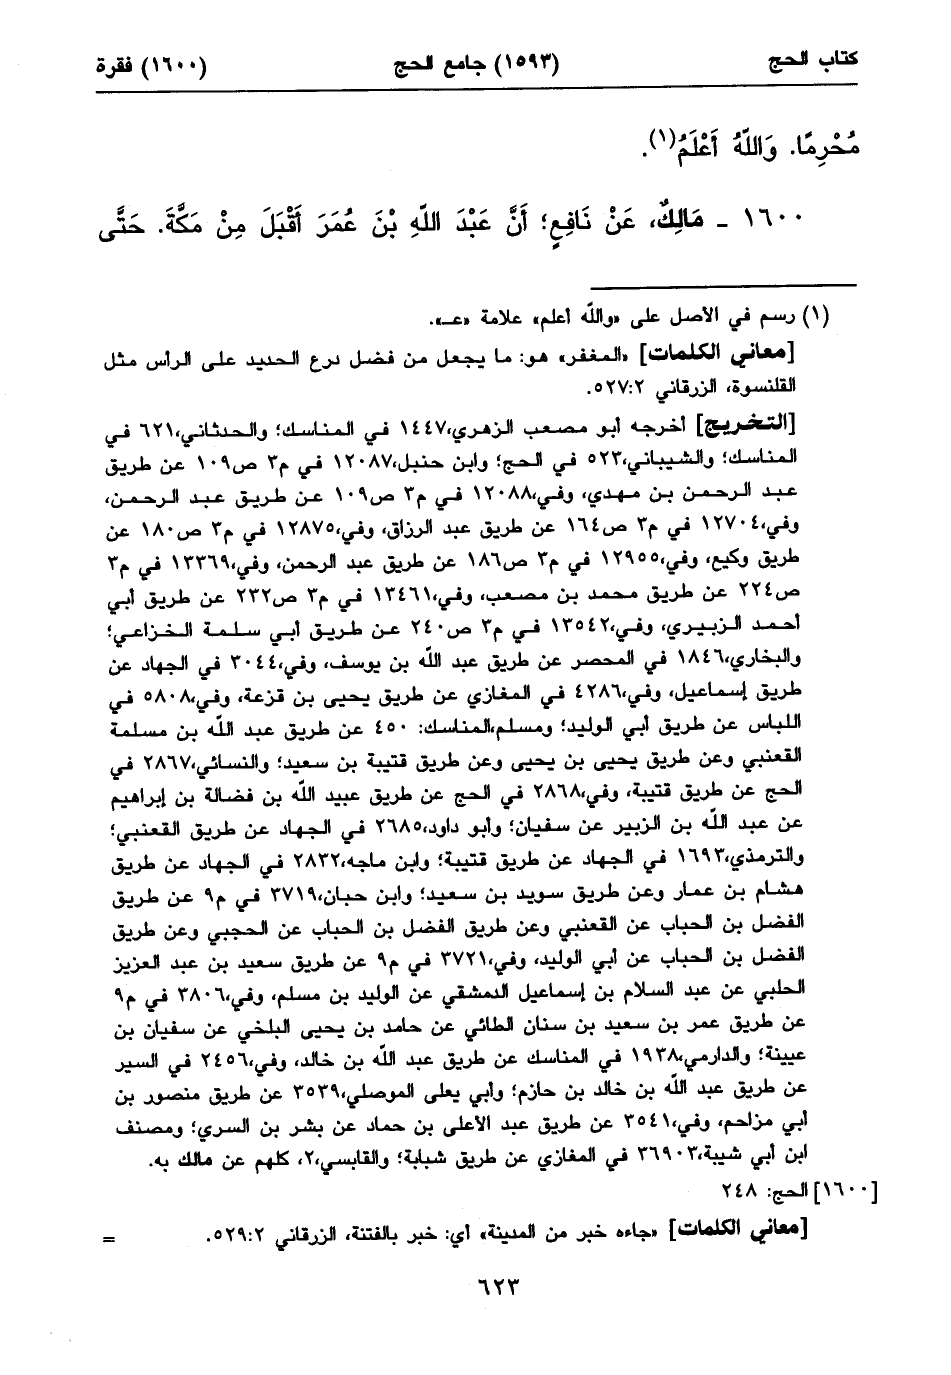 كتاب الحج (١٥٩٣) جامع الحج (١٦٠٠) فقرة
مُحْرِمًا. وَاللَّهُ أَعْلَمُ(١).
١٦٠٠ ـ مَالِكٌ، عَنْ نَافِعٍ؛ أَنَّ عَبْدَ اللَّهِ بْنَ عُمَرَ أَقْبَلَ مِنْ مَكَّةَ. حَتَّى
(١) رسم في الأصل على «والله أعلم» علامة «عـ».
[معاني الكلمات] «المغفر» هو: ما يجعل من فضل درع الحديد على الرأس مثل
القلنسوة، الزرقاني ٥٢٧:٢.
[التخريج] أخرجه أبو مصعب الزهري، ١٤٤٧ في المناسك؛ والحدثاني، ٦٢١ في
المناسك؛ والشيباني، ٥٢٣ في الحج؛ وابن حنبل، ١٢٠٨٧ في م٣ ص١٠٩ عن طريق
عبد الرحمن بن مهدي، وفي، ١٢٠٨٨ في م٣ ص١٠٩ عن طريق عبد الرحمن،
وفي، ١٢٧٠٤ في م٣ ص١٦٤ عن طريق عبد الرزاق، وفي، ١٢٨٧٥ في م٣ ص١٨٠ عن
طريق وكيع، وفي، ١٢٩٥٥ في م٣ ص١٨٦ عن طريق عبد الرحمن، وفي، ١٣٣٦٩ في م٣
ص٢٢٤ عن طريق محمد بن مصعب، وفي، ١٣٤٦١ في م٣ ص٢٣٢ عن طريق أبي
أحمد الزبيري، وفي، ١٣٥٤٢ في م٣ ص٢٤٠ عن طريق أبي سلمة الخزاعي؛
والبخاري، ١٨٤٦ في المحصر عن طريق عبد الله بن يوسف، وفي، ٣٠٤٤ في الجهاد عن
طريق إسماعيل، وفي، ٤٢٨٦ في المغازي عن طريق يحيى بن قزعة، وفي، ٥٨٠٨ في
اللباس عن طريق أبي الوليد؛ ومسلم، المناسك: ٤٥٠ عن طريق عبد الله بن مسلمة
القعنبي وعن طريق يحيى بن يحيى وعن طريق قتيبة بن سعيد؛ والنسائي، ٢٨٦٧ في
الحج عن طريق قتيبة، وفي، ٢٨٦٨ في الحج عن طريق عبيد الله بن فضالة بن إبراهيم
عن عبد الله بن الزبير عن سفيان؛ وأبو داود، ٢٦٨٥ في الجهاد عن طريق القعنبي؛
والترمذي، ١٦٩٣ في الجهاد عن طريق قتيبة؛ وابن ماجه، ٢٨٣٢ في الجهاد عن طريق
هشام بن عمار وعن طريق سويد بن سعيد؛ وابن حبان، ٣٧١٩ في م٩ عن طريق
الفضل بن الحباب عن القعنبي وعن طريق الفضل بن الحباب عن الحجبي وعن طريق
الفضل بن الحباب عن أبي الوليد، وفي، ٣٧٢١ في م٩ عن طريق سعيد بن عبد العزيز
الحلبي عن عبد السلام بن إسماعيل الدمشقي عن الوليد بن مسلم، وفي، ٣٨٠٦ في م٩
عن طريق عمر بن سعيد بن سنان الطائي عن حامد بن يحيى البلخي عن سفيان بن
عيينة؛ والدارمي، ١٩٣٨ في المناسك عن طريق عبد الله بن خالد، وفي، ٢٤٥٦ في السير
عن طريق عبد الله بن خالد بن حازم؛ وأبي يعلى الموصلي، ٣٥٣٩ عن طريق منصور بن
أبي مزاحم، وفي، ٣٥٤١ عن طريق عبد الأعلى بن حماد عن بشر بن السري؛ ومصنف
ابن أبي شيبة، ٣٦٩٠٣ في المغازي عن طريق شبابة؛ والقابسي، ٢، كلهم عن مالك به.
[١٦٠٠] الحج: ٢٤٨
[معاني الكلمات] «جاءه خبر من المدينة» أي: خبر بالفتنة، الزرقاني ٥٢٩:٢. =
٦٢٣